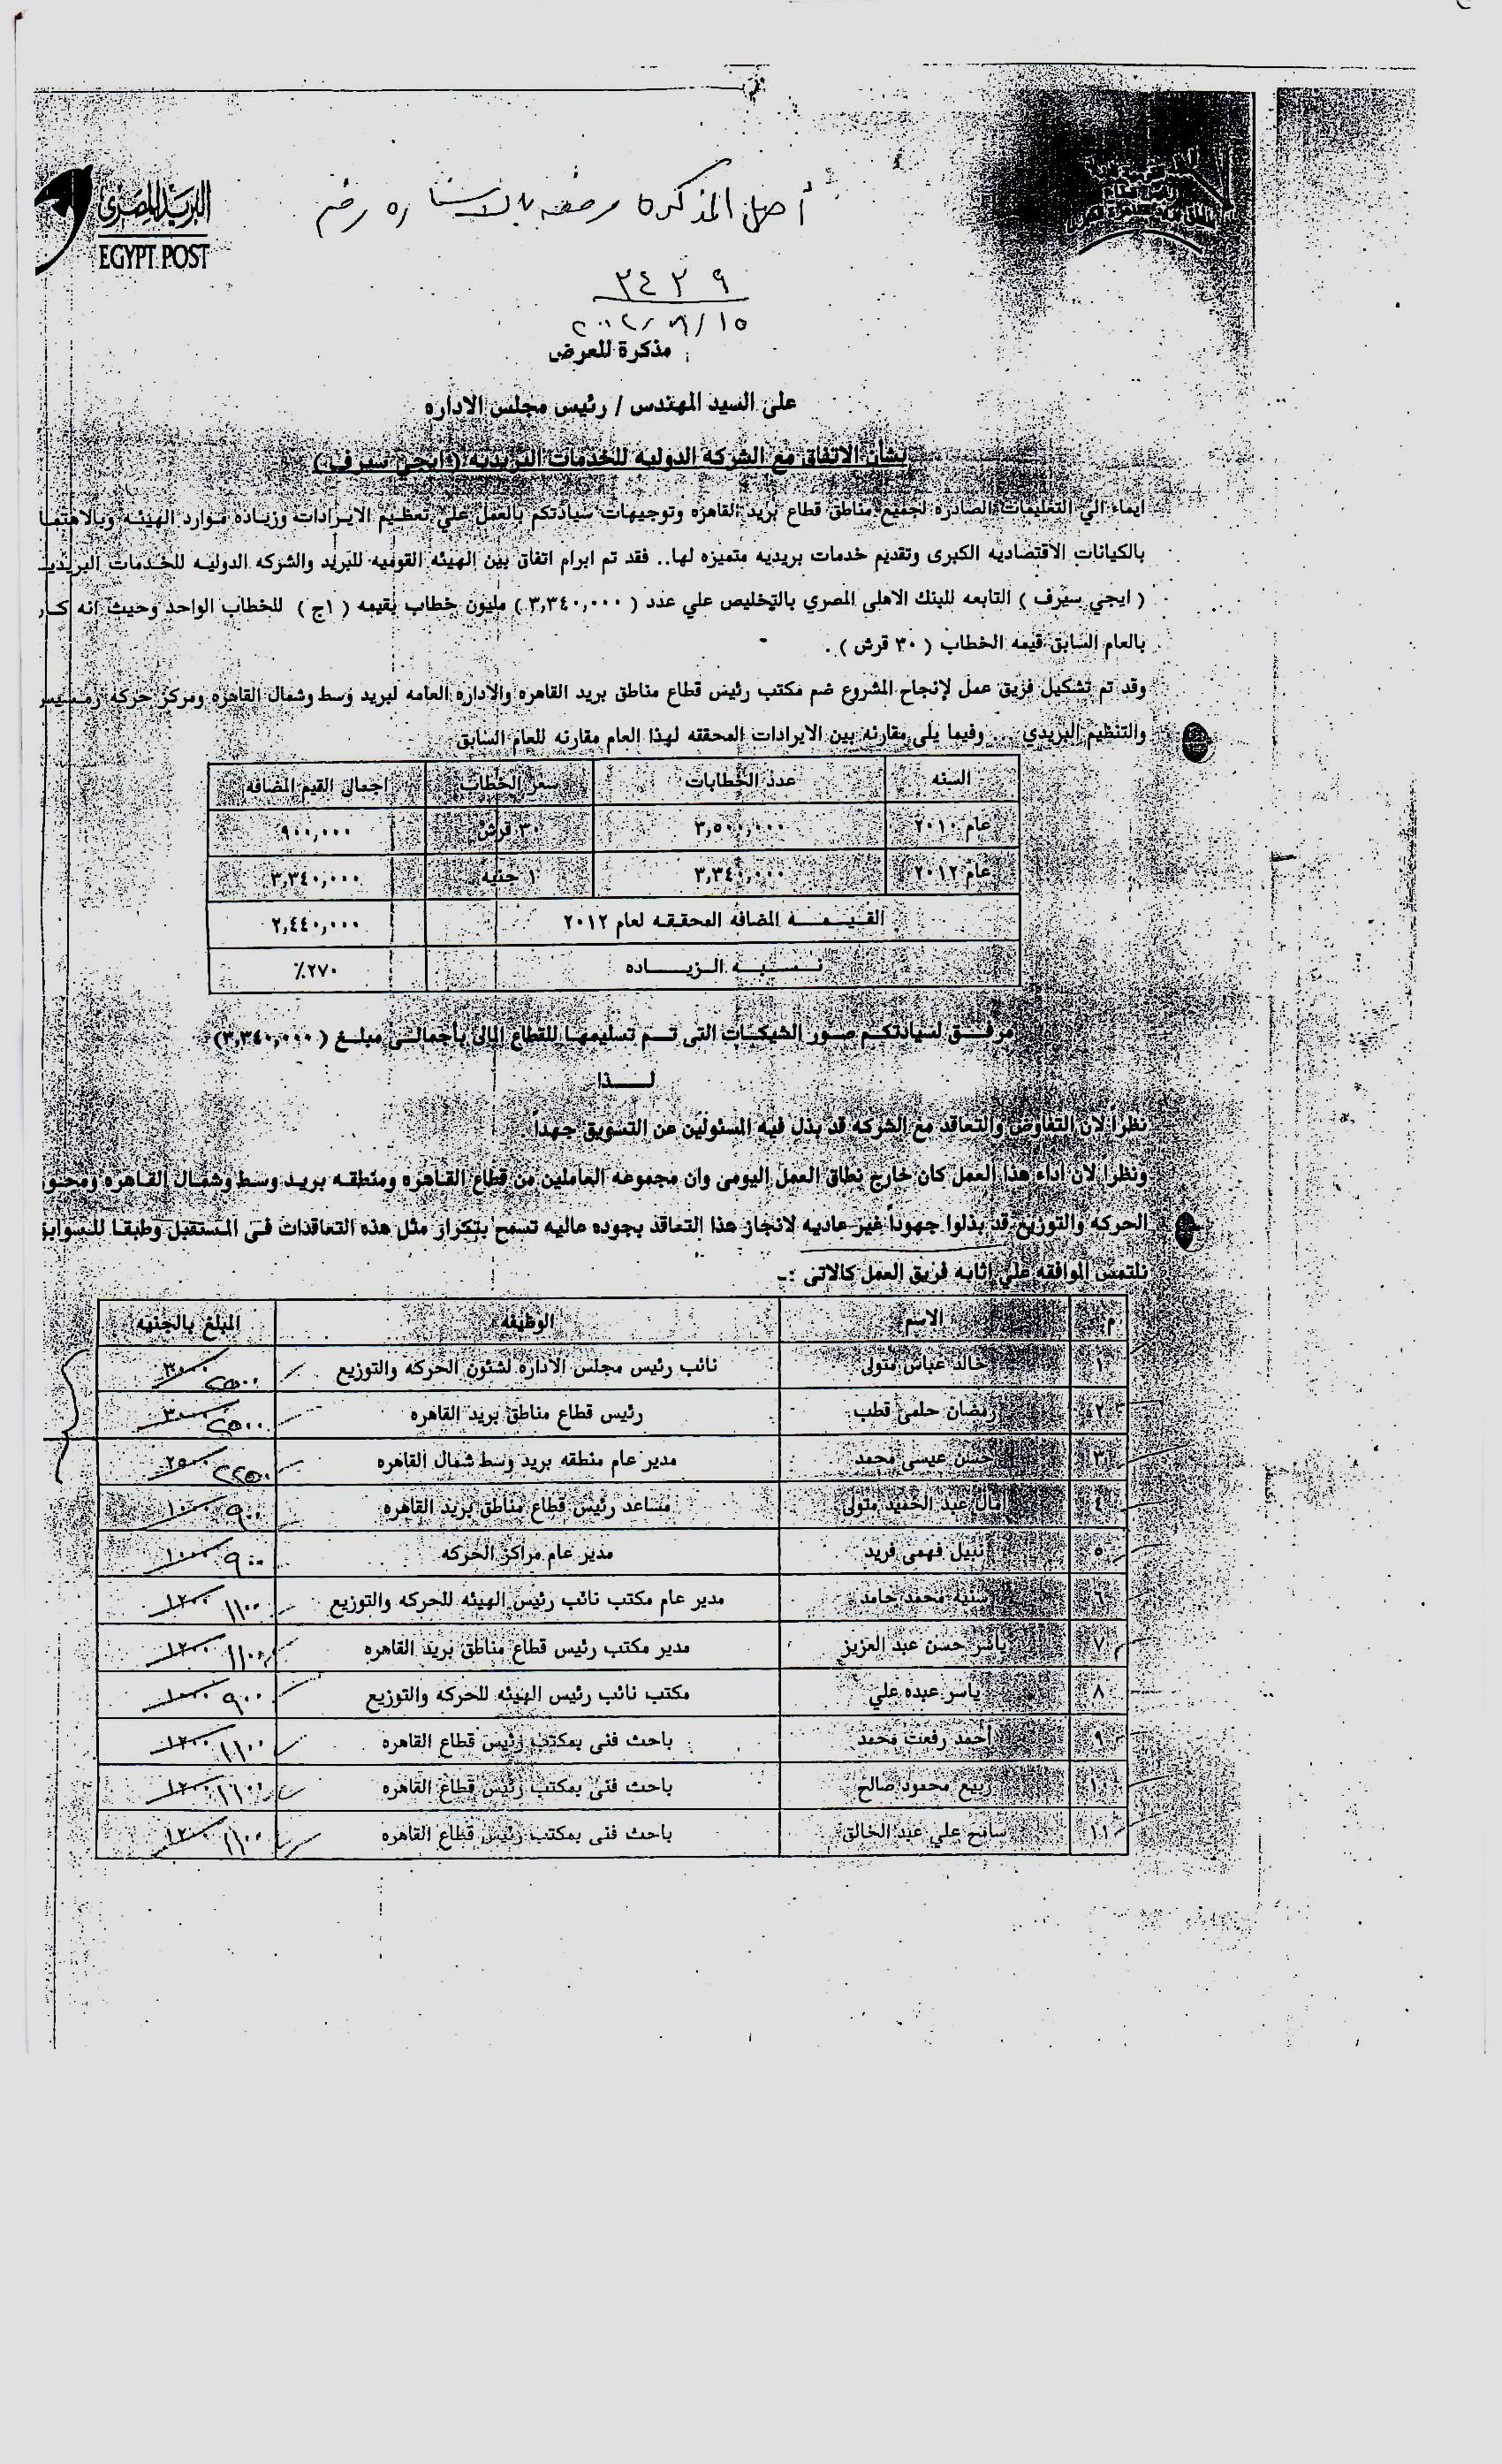 البريد المصرى
EGYPT POST
أصل المذكرة مرفقه بالاستماره رقم
٣٤٢٩
٢٠١٢/٨/١٥
مذكرة للعرض
على السيد المهندس / رئيس مجلس الاداره
بشأن الاتفاق مع الشركه الدوليه للخدمات البريديه ( ايجي سيرف )
ايماء الي التعليمات الصادره لجميع مناطق قطاع بريد القاهره وتوجيهات سيادتكم بالعمل علي تعظيم الايرادات وزياده موارد الهيئه وبالاهتما
بالكيانات الاقتصاديه الكبرى وتقديم خدمات بريديه متميزه لها.. فقد تم ابرام اتفاق بين الهيئه القوميه للبريد والشركه الدوليه للخدمات البريديـ
( ايجي سيرف ) التابعه للبنك الاهلى المصري بالتخليص علي عدد ( ٣,٣٤٠,٠٠٠ ) مليون خطاب بقيمه ( ١ج ) للخطاب الواحد وحيث انه كـار
بالعام السابق قيمه الخطاب ( ٣٠ قرش ) .
وقد تم تشكيل فريق عمل لإنجاح المشروع ضم مكتب رئيس قطاع مناطق بريد القاهره والاداره العامه لبريد وسط وشمال القاهره ومركز حركه رمسيس
والتنظيم البريدي ... وفيما يلى مقارنه بين الايرادات المحققه لهذا العام مقارنه للعام السابق
السنه عدد الخطابات سعر الخطاب اجمالى القيم المضافه
عام ٢٠١٠ ٣,٥٠٠,٠٠٠ ٣٠ قرش ٩٠٠,٠٠٠
عام ٢٠١٢ ٣,٣٤٠,٠٠٠ ١ جنيه ٣,٣٤٠,٠٠٠
القيمـــه المضافه المحققه لعام ٢٠١٢ ٢,٤٤٠,٠٠٠
نـسبـه الـزيـاده ٢٧٠٪
مرفـق لسيادتكـم صـور الشيكـات التى تـم تسليمهـا للقطاع المالى بأجمالـى مبلـغ ( ٣,٣٤٠,٠٠٠)
لــــذا
نظراً لان التفاوض والتعاقد مع الشركه قد بذل فيه المسئولين عن التسويق جهداً
ونظرا لان اداء هذا العمل كان خارج نطاق العمل اليومى وان مجموعه العاملين من قطاع القـاهره ومنطقـه بريـد وسـط وشمـال القـاهره ومحـو
الحركه والتوزيع قد بذلوا جهوداً غير عاديه لانجاز هذا التعاقد بجوده عاليه تسمح بتكرار مثل هذه التعاقدات فـى المستقبل وطبقـا للسوابق
نلتمس الموافقه علي إثابه فريق العمل كالاتى :ـ
م الاسم الوظيفه المبلغ بالجنيه
١ خالد عباس متولى نائب رئيس مجلس الاداره لشئون الحركه والتوزيع ٣٠٠٠ ٢٥٠٠
٢ رمضان حلمى قطب رئيس قطاع مناطق بريد القاهره ٣٠٠٠ ٢٥٠٠
٣ حسن عيسى محمد مدير عام منطقه بريد وسط شمال القاهره ٢٥٠٠ ٢٢٥٠
٤ امال عبد الحميد متولى مساعد رئيس قطاع مناطق بريد القاهره ١٠٠٠ ٩٠٠
٥ نبيل فهمى فريد مدير عام مراكز الحركه ١٠٠٠ ٩٠٠
٦ سنيه محمد حامد مدير عام مكتب نائب رئيس الهيئه للحركه والتوزيع ١٢٠٠ ١١٠٠
٧ ياسر حسن عبد العزيز مدير مكتب رئيس قطاع مناطق بريد القاهره ١٢٠٠ ١١٠٠
٨ ياسر عبده علي مكتب نائب رئيس الهيئه للحركه والتوزيع ١٠٠٠ ٩٠٠
٩ احمد رفعت محمد باحث فنى بمكتب رئيس قطاع القاهره ١٢٠٠ ١١٠٠
١٠ ربيع محمود صالح باحث فنى بمكتب رئيس قطاع القاهره ١٢٠٠ ١١٠٠
١١ سامح علي عبد الخالق باحث فنى بمكتب رئيس قطاع القاهره ١٢٠٠ ١١٠٠